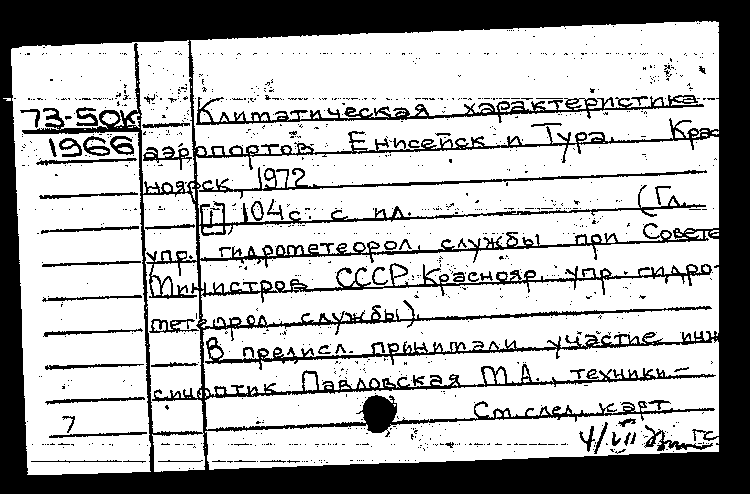 73-50к Климатическая характеристика
1966 аэропортов Енисейск и Тура. Крас
ноярск, 1972.
[1], 104 с. с ил. (Гл.
упр. гидрометеорол. службы при Совете
Министров СССР. Краснояр. упр. гидро-
метеорол. службы).
В предисл. принимали участие инж
синоптик Павловская М.А., техники-
См. след. карт.
7
4/VII ГС